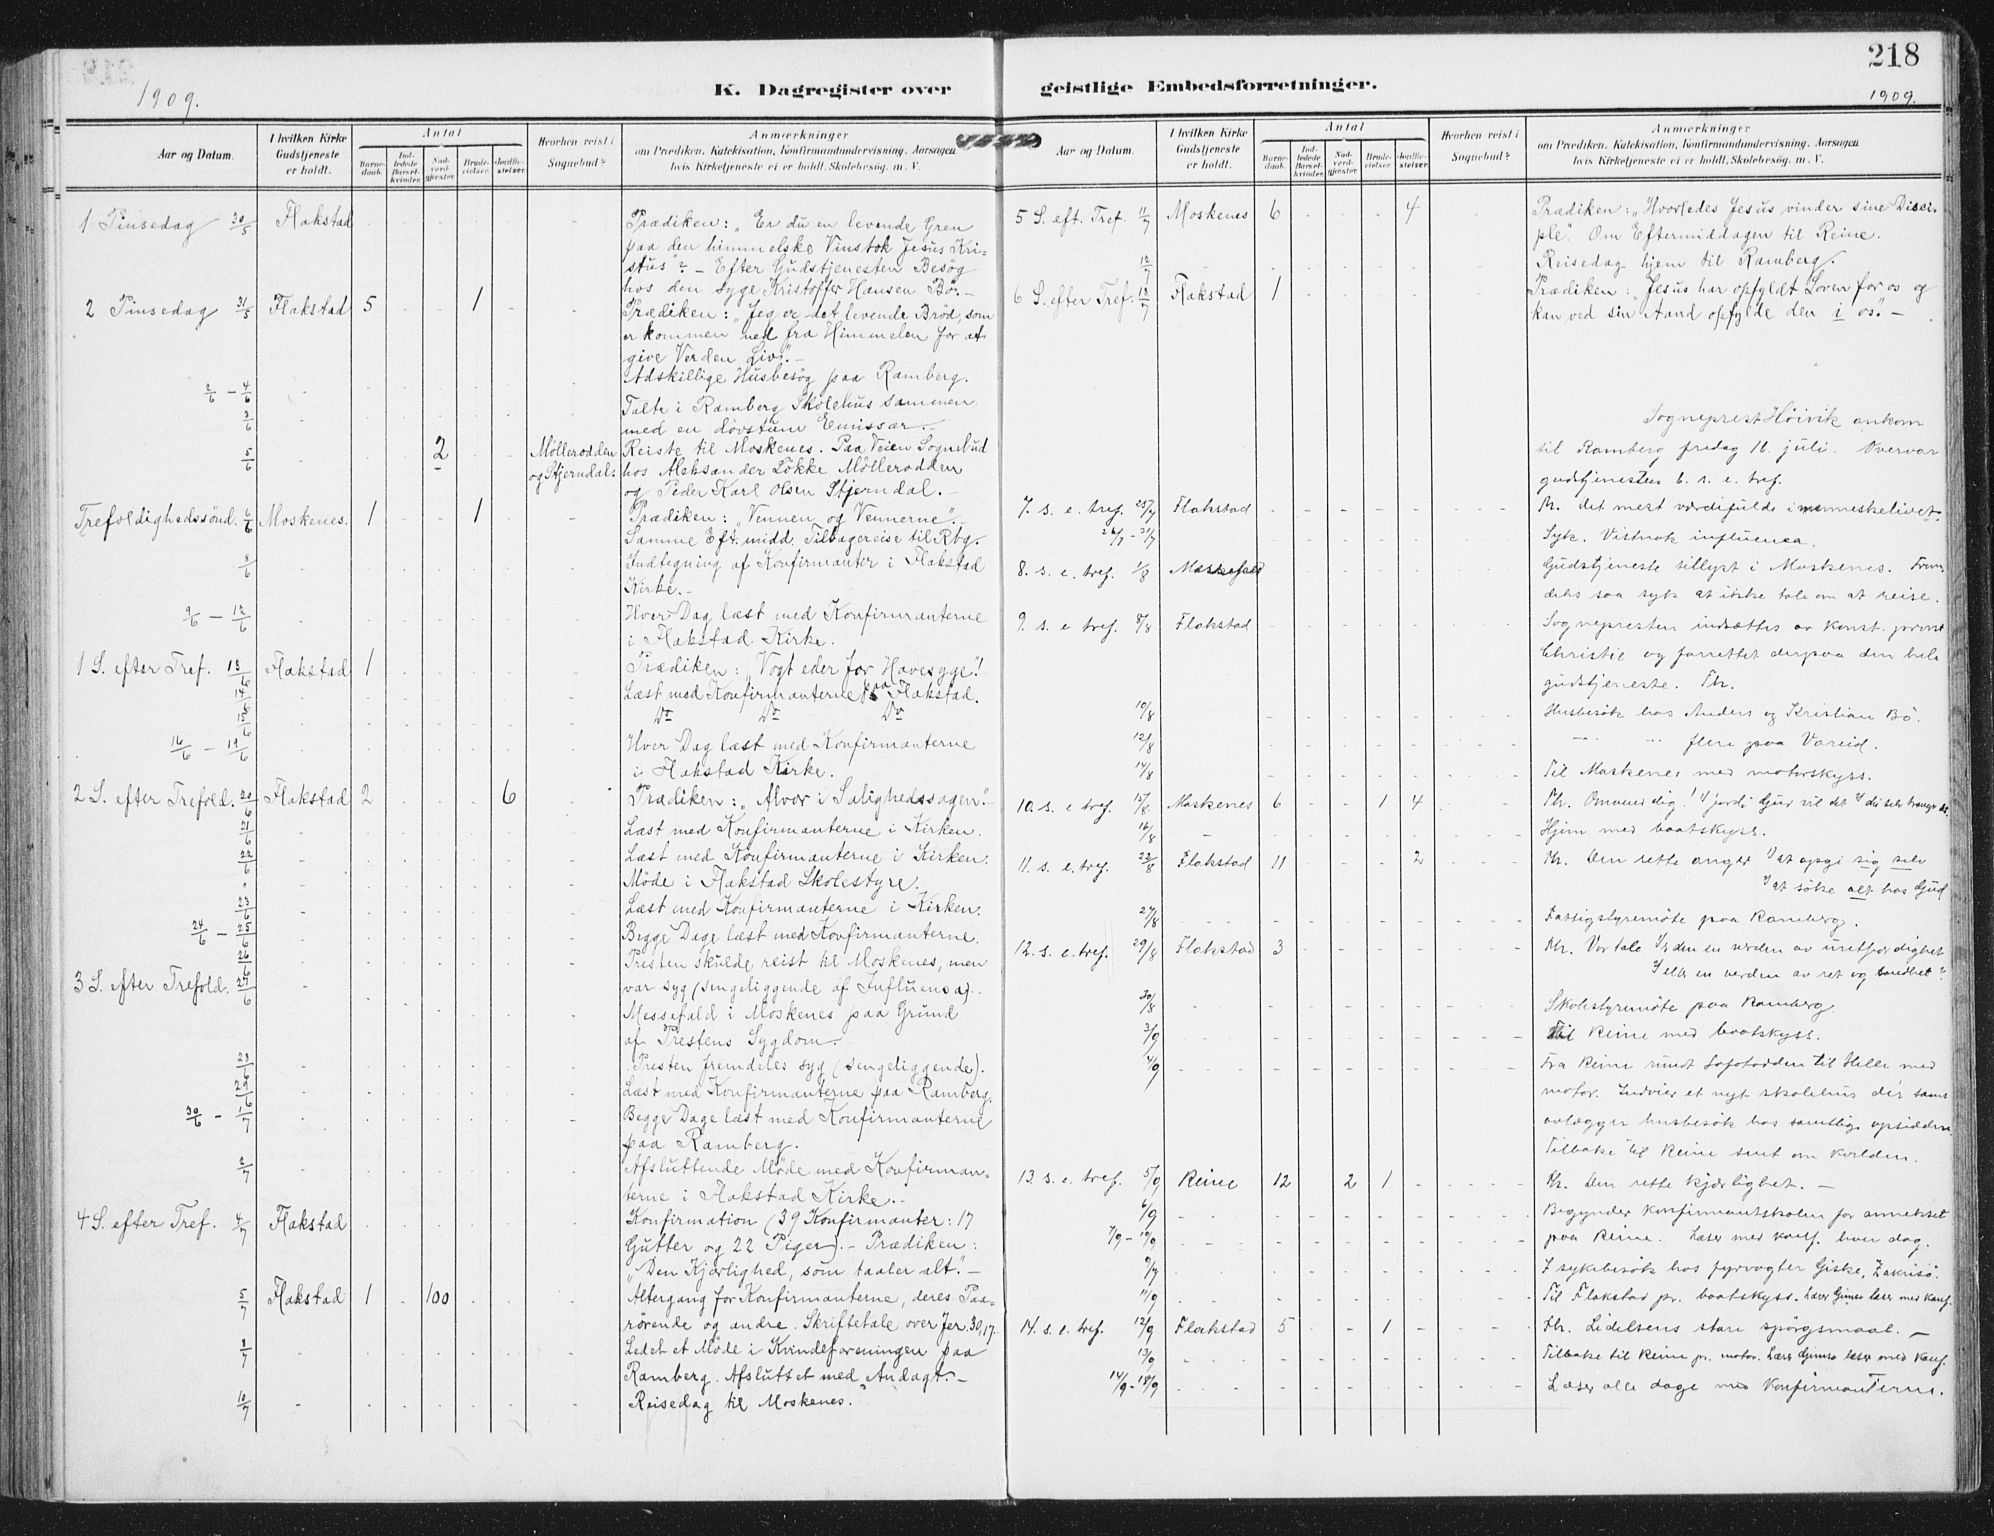 218
1909.
K. Dagregister over geistlige Embedsforretninger.
1909.
Aar og Datum.
I hvilken Kirke Gudstjeneste er holdt.
Antal
Barnedaab.
Indledede Barselkvinder.
Nadverdgjester.
Brudevielser.
Jordfæstelser.
Hvorhen reist i Sognebud?
Anmærkninger
om Prædiken, Katekisation, Konfirmandundervisning. Aarsagen
hvis Kirketjeneste ei er holdt. Skolebesøg. m. V.
1 Pinsedag 30/5 Flakstad Prædiken: „Er du en levende Gren
paa den himmelske Vinstok Jesus Kri-
stus"? - Efter Gudstjenesten Besøg
hos den syge Kristoffer Hansen Bö. -
2 Pinsedag 31/5 Flakstad 5 1 Prædiken: „Jeg er det levende Bröd, som
er kommen ned fra Himmelen for at
give Verden Liv". -
2/6 - 4/6 Adskillige Husbesøg paa Ramberg.
3/6 Talte i Ramberg Skolehus sammen
med en dövstum Emissær. -
5/6 2 Möllerodden og Stjerndal. Reiste til Moskenes. Paa Veien Sognebud
hos Aleksander Lökke Möllerodden
og Peder Karl Olsen Stjerndal. -
Trefoldighedssönd. 6/6 Moskenes. 1 1 Prædiken: „Vennen og Vennerne". -
Samme Eft.midd. Tilbagereise til Rbg.
8/6 Indtegning af Konfirmanter i Flakstad
Kirke. -
9/6 - 12/6 Hver Dag læst med Konfirmanterne
i Flakstad Kirke.
1 S. efter Tref. 13/6 Flakstad 1 Prædiken: „Vogt eder for Havesyge"!
14/6 Læst med Konfirmanterne paa Flakstad.
15/6 Do Do Do
16/6 - 19/6 Hver Dag læst med Konfirmanterne
i Flakstad Kirke.
2 S. efter Trefold. 20/6 Flakstad 2 6 Prædiken: „Alvor i Salighedssagen". -
21/6 Læst med Konfirmanterne i Kirken.
22/6 Læst med Konfirmanterne i Kirken.
" Möde i Flakstad Skolestyre.
23/6 Læst med Konfirmanterne i Kirken.
24/6 - 25/6 Begge Dage læst med Konfirmanterne.
26/6 Presten skulde reist til Moskenes, men
3 S. efter Trefold. 27/6 var syg (sengeliggende af Influensa).
Messefald i Moskenes paa Grund
af Prestens Sygdom. -
28/6 Presten fremdeles syg (sengeliggende).
29/6 Læst med Konfirmanterne paa Ramberg.
30/6 - 1/7 Begge Dage læst med Konfirmanterne
paa Ramberg.
2/7 Afsluttende Möde med Konfirman-
terne i Flakstad Kirke. -
4 S. efter Tref. 4/7 Flakstad Konfirmation (39 Konfirmanter: 17
Gutter og 22 Piger). - Prædiken:
„Den Kjærlighed, som taaler alt". -
5/7 Flakstad 1 100 Altergang for Konfirmanterne, deres Paa-
rörende og andre. Skriftetale over Jer. 30,17.
Ledet et Möde i Kvindeforeningen paa
Ramberg. Afsluttet med Andagt. -
10/7 Reisedag til Moskenes.
Aar og Datum.
I hvilken Kirke Gudstjeneste er holdt.
Antal
Barnedaab.
Indledede Barselkvinder.
Nadverdgjester.
Brudevielser.
Jordfæstelser.
Hvorhen reist i Sognebud?
Anmærkninger
om Prædiken, Katekisation, Konfirmandundervisning. Aarsagen
hvis Kirketjeneste ei er holdt. Skolebesøg. m. V.
5 S. eft. Tref. 11/7 Moskenes 6 4 Prædiken: „Hvorledes Jesus vinder sine Disci-
ple". Om Eftermiddagen til Reine.
12/7 Reisedag hjem til Ramberg.
6 S. efter Tref. 18/7 Flakstad 1 Prædiken: „Jesus har opfyldt Loven for os og
kan ved sin Aand opfylde den i os". -
Sogneprest Höivik ankom
til Ramberg fredag 16. juli. Overvar
gudstjenesten 6. s. e. tref.
7. s. e. tref. 25/7 Flakstad Th. det mest værdifulde i menneskelivet.
26/7 - 31/7 Syk. Vistnok influenca.
8. s. e. tref. 1/8 Messefald Gudstjeneste tillyst i Moskenes. Frem-
deles saa syk at ikke tale om at reise.
9. s. e tref. 8/8 Flakstad Sognepresten indsættes av konst. provst
Christie og forrettet derpaa den hele
gudstjeneste. Th.
10/8 Husbesök hos Anders og Kristian Bö.
12/8 flere paa Vareid.
14/8 Til Moskenes med motorskyss.
10. s. e tref. 15/8 Moskenes 6 1 4 Th. Omvend dig!
16/8 Hjem med baatskyss.
11. s. e. tref. 22/8 Flakstad 11 2 Th. Den rette anger 1) at opgi sig selv
2) at söke alt hos Gud
27/8 Fattigstyremöte paa Ramberg.
12. s. e. tref. 29/8 Flakstad 3 Th. Vor tale 1) er den en verden av uretfærdighet
2) elle en verden av ret og sandhet?
30/8 Skolestyremöte paa Ramberg.
3/9 Til Reine med baatskyss.
4/9 Fra Reine rundt Lofotodden til Helle med
motor. Indvier et nyt skolehus der samt
avlægger husbesök hos samtlige opsiddere.
Tilbake til Reine sent om kvelden.
13. s. e. tref. 5/9 Reine 12 2 1 Th. Den rette kjærlighet. -
6/9 Begynder konfirmantskolen for annekset
7/9 - 10/9 paa Reine. Læser med konf. hver dag.
9/9 I sykebesök hos fyrvogter Giske,
11/9 Til Flakstad pr. baatskyss. Lærer Gimsö læser med konf.
14. s. e. tref. 12/9 Flakstad 5 1 Th. Lidelsens store spörgsmaal. -
13/9 Tilbake til Reine pr. motor. Lærer Gimsö læser med konf.
14/9 - 18/9 Læser alle dage med konfirmanterne.